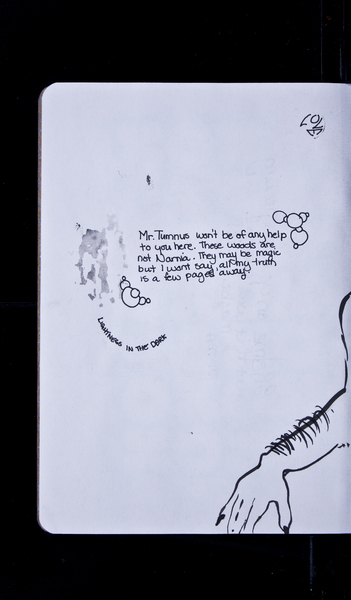 Mr. Tumnus won't be of any help
to you here. These woods are
not Narnia. They may be magic
but I won't say, all my truth
is a few pages away.
LIGHTNESS IN THE DARK